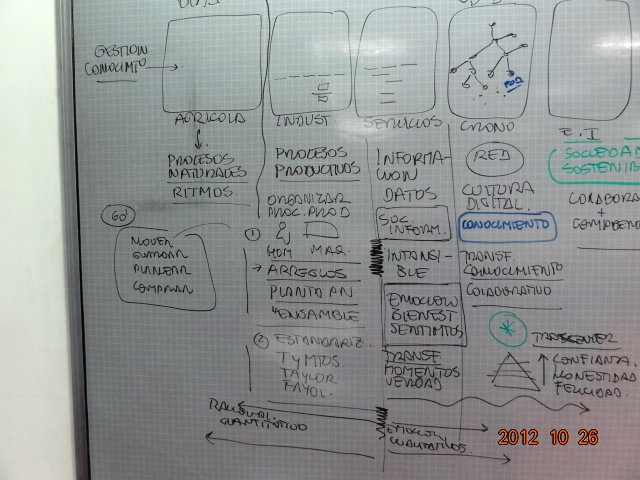 GESTION
CONOCIMTO
AGRICOLA
INDUST
SERVICIOS
CONO
E. I
PROCESOS
NATURALES
RITMOS.
PROCESOS
PRODUCTIVOS
ORGANIZAR
PROC. PROD
①
HOM MAQ.
→ ARREGLOS
PLANTA
"ENSAMBLE
② ESTANDARIZ.
T y MTOS.
TAYLOR
FAYOL.
60'
MOVER
GUARDAR
PLANEAR
COMPARAR
INFORMA-
CION
DATOS
SOC.
INFORM.
INTANGI-
BLE
EMOCIONO
BIENEST
SENTIMTOS
TRANSF.
MOMENTOS
VERDAD
RED
CULTURA
DIGITAL.
CONOCIMIENTO
TRANSF.
CONOCIMIENTO
COLABORATIVO
SOCIEDAD
SOSTENIB
COLABORA
+
*
TRASCENDER
CONFIANZA.
HONESTIDAD
FELICIDAD.
RACIONAL.
CUANTITATIVO
CUALITATIVOS
2012 10 26